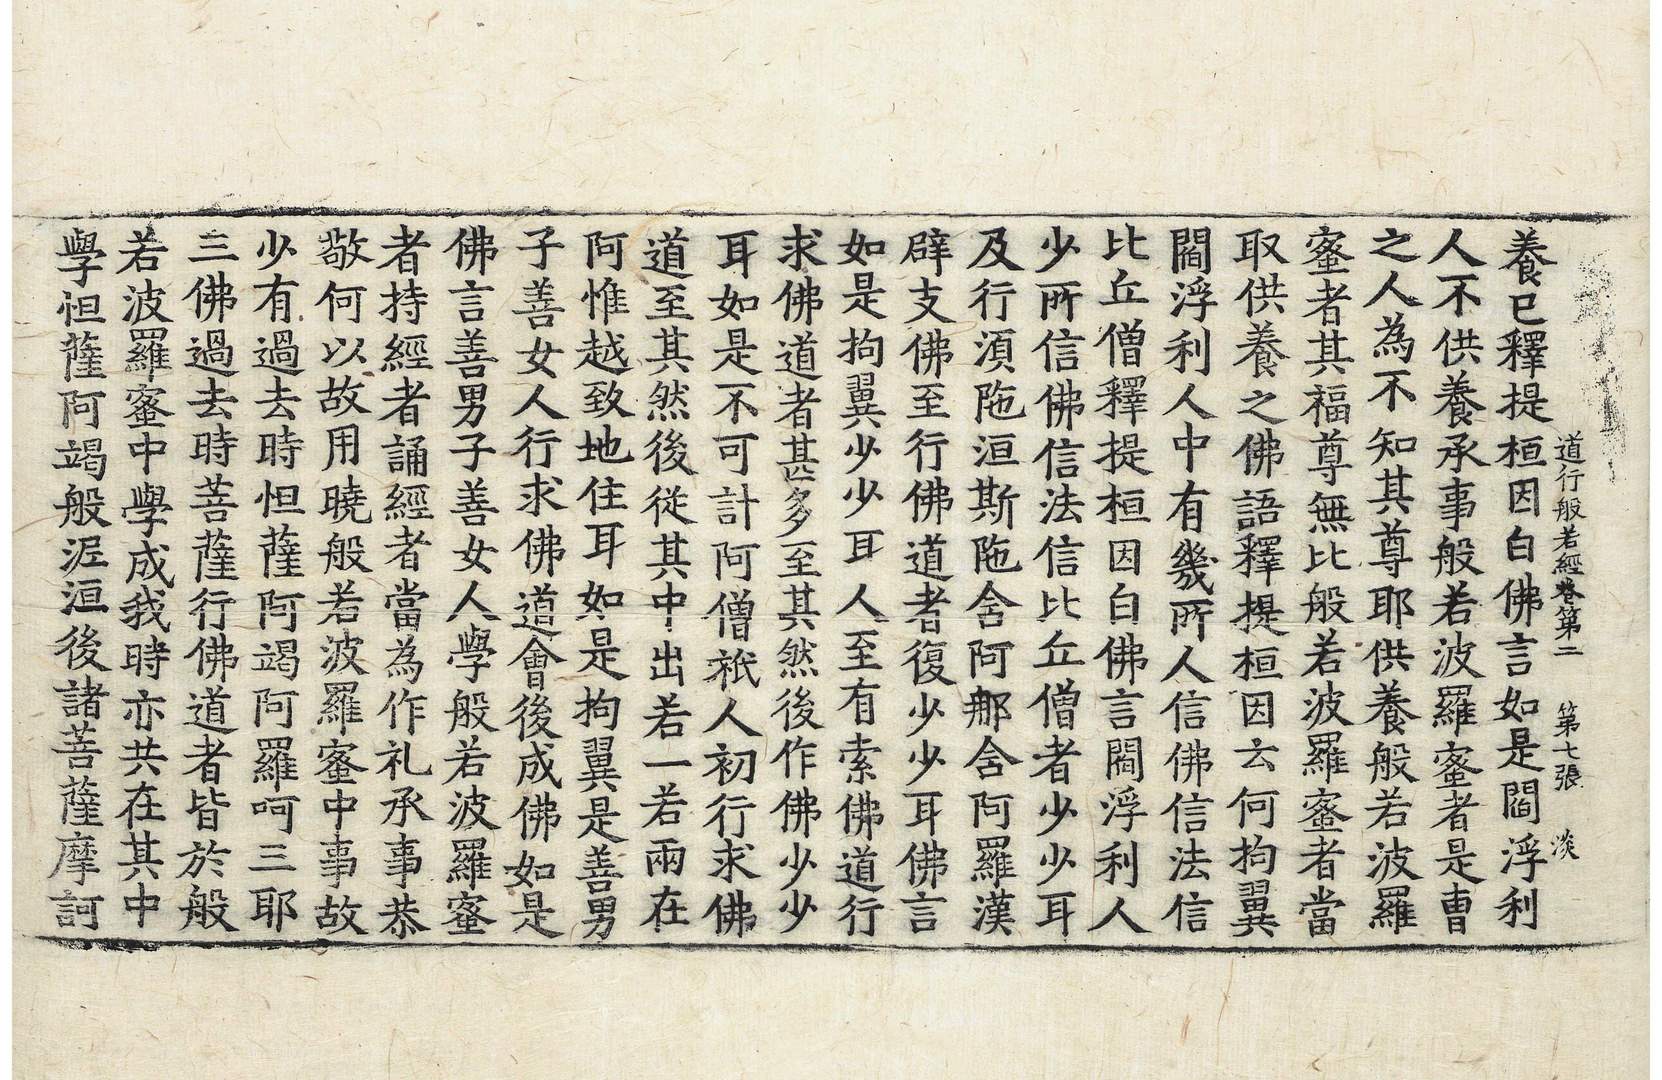 道行般若經卷第二　第七張　淡
養已釋提桓因白佛言如是閻浮利
人不供養承事般若波羅蜜者是曹
之人為不知其尊耶供養般若波羅
蜜者其福尊無比般若波羅蜜者當
取供養之佛語釋提桓因云何拘翼
閻浮利人中有幾所人信佛信法信
比丘僧釋提桓因白佛言閻浮利人
少所信佛信法信比丘僧者少少耳
及行須陁洹斯陁含阿那含阿羅漢
辟支佛至行佛道者復少少耳佛言
如是拘翼少少耳人至有索佛道行
求佛道者甚多至其然後作佛少少
耳如是不可計阿僧祇人初行求佛
道至其然後從其中出若一若兩在
阿惟越致地住耳如是拘翼是善男
子善女人行求佛道會後成佛如是
佛言善男子善女人學般若波羅蜜
者持經者誦經者當為作礼承事恭
敬何以故用曉般若波羅蜜中事故
少有過去時怛薩阿竭阿羅呵三耶
三佛過去時菩薩行佛道者皆於般
若波羅蜜中學成我時亦共在其中
學怛薩阿竭般泥洹後諸菩薩摩訶